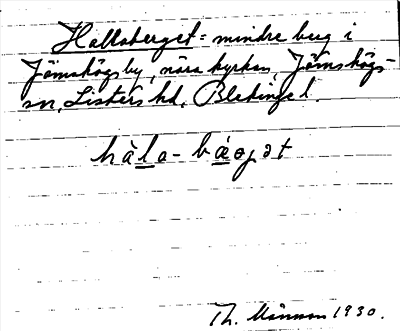 Hallaberget = mindre berg i
Jämshögs by, nära kyrkan, Jämshögs-
sn, Listers hd, Blekinge l.
Th. Månsson 1930.